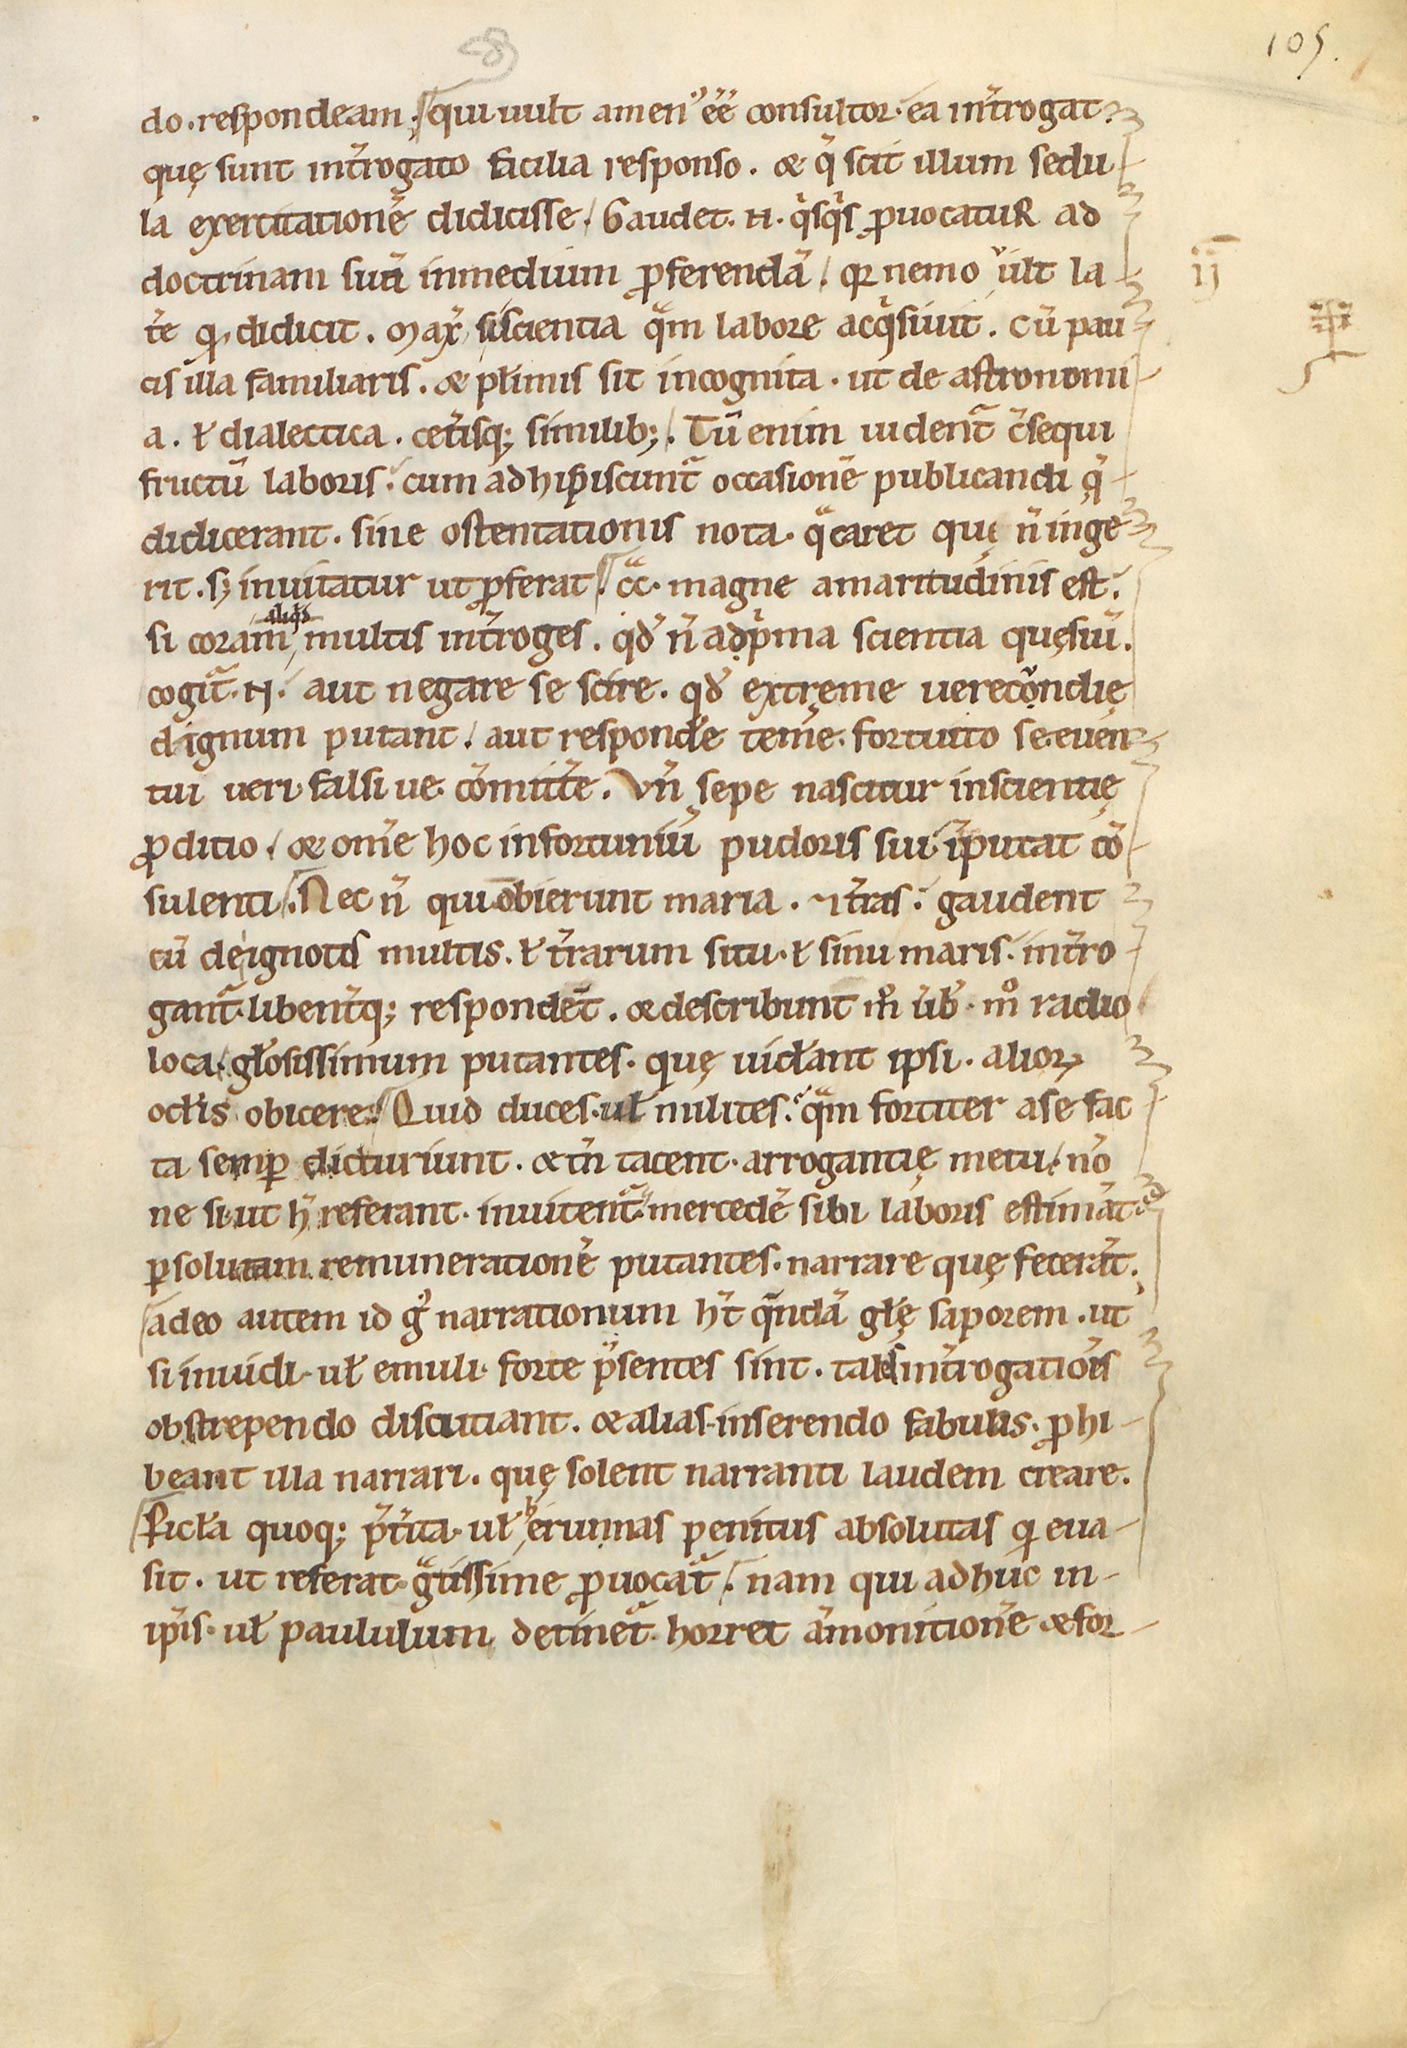 105.
do. respondeam. qui uult amen᷒ ee̅ consultor. ea int̅rogat.
quę sunt int̅rogato facilia responso. & q̅ scit illum sedu
la exercitatione̅ didicisse. Gaudet. N. q̅sq̅s ꝓuocatur ad
doctrinam sua̅ inmedium ꝓferenda̅. qr nemo uult la
te̅ qd didicit. maxi̅ si scientia qa̅m labore acq̅siuit. cu̅ pau
cis illa familiaris. & płimis sit incognita. ut de astronomi
a. ł dialectica. cet̅isq; similib;. Tu̅ enim uident̅ c̅sequi
fructu̅ laboris. cum adhipiscunt̅ occasione̅ publicandi q̅
didicerant. sine ostentationis nota. qa̅ caret quę n̅ inge
rit. s; inuitatur ut ꝓferat. cc̅. magne amaritudinis est.
aliq̅s
si coram multis int̅roges. qd̅ n̅ adp̅ma scientia quęsiu̅.
cogit̅. N. aut negare se scire. qd̅ extręme uereco̅ndię
dignum putant. aut responde̅ teme̅. fortuito se euen
tui ueri falsi ue co̅mitte̅. Vn̅ sepe nascitur inscientię
ꝓditio. & om̅e hoc infortuniu̅ pudoris sui i̅putat co̅
sulenti. Nec n̅ qui obierunt maria. & t̅ras. gaudent
cu̅ de ignotis multis. ł t̅rarum situ. ł sinu maris. int̅ro
gant̅. libent̅q; respondet̅. & describunt m̊ u̅b̅. m̊ radio
loca. głosissimum putantes. quę uiderant ipsi. alioꝝ
ocłis obicere. Quid duces. uł milites. qa̅m fortiter a se fac
ta semꝑ dicturiunt. & tn̅ tacent. arrogantię metu. no̅
ne si. ut h̅ referant. inuitent̅. mercede̅ sibi laboris estima̅t.
ꝑsolutam. remuneratione̅ putantes. narrare quę fecera̅t.
adeo autem id g̅ narrationum h̅t qa̅nda̅ głę saporem. ut
si inuidi. uł emuli. forte p̅sentes sint. tales int̅rogatio̅is
obstrependo discutiant. & alias inserendo fabulis. ꝓhi
beant illa narrari. quę solent narranti laudem creare.
Picła quoq; p̅t̅ita. uł erumnas penitus absolutas qi eua
sit. ut referat. ga̅tissime ꝓuocat̅. nam qui adhuc in
ip̅is. uł paululum detinet̅. horret a̅monitione̅ & for